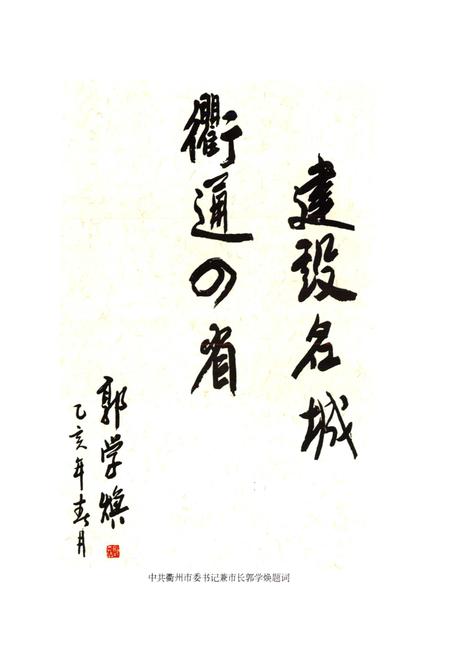 建设名城
衢通四省
郭学焕
乙亥年春月
中共衢州市委书记兼市长郭学焕题词